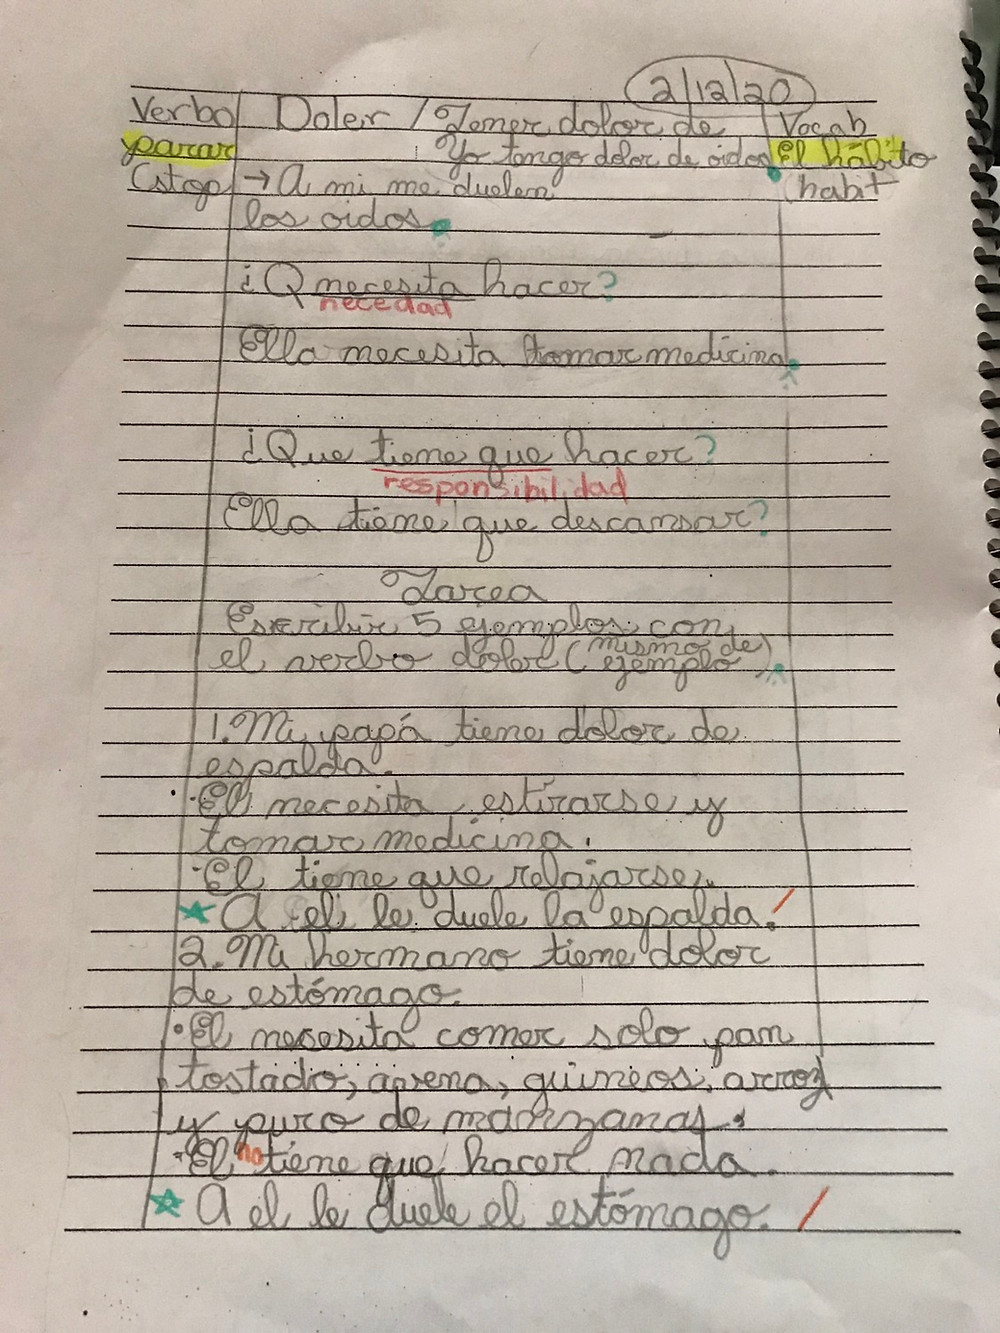 2/12/20
Verbo Doler / Tener dolor de Vocab
parar Yo tengo dolor de oidos. el hábito
(stop → A mi me duelen (habit
los oidos.
¿Q necesita hacer?
necedad
Ella necesita tomar medicina.
¿Que tiene que hacer?
responsibilidad
Ella tiene que descansar?
Tarea
Escribir 5 ejemplos con
el verbo doler (mismo de
ejemplo).
1. Mi papá tiene dolor de
espalda.
·El necesita estirarse y
tomar medicina.
·El tiene que relajarse.
★ A el le duele la espalda. /
2. Mi hermano tiene dolor
de estómago.
·El necesita comer solo pan
tostado, avena, guineos, arroz
y puro de manzanas.
·El no tiene que hacer nada.
★ A el le duele el estómago. /